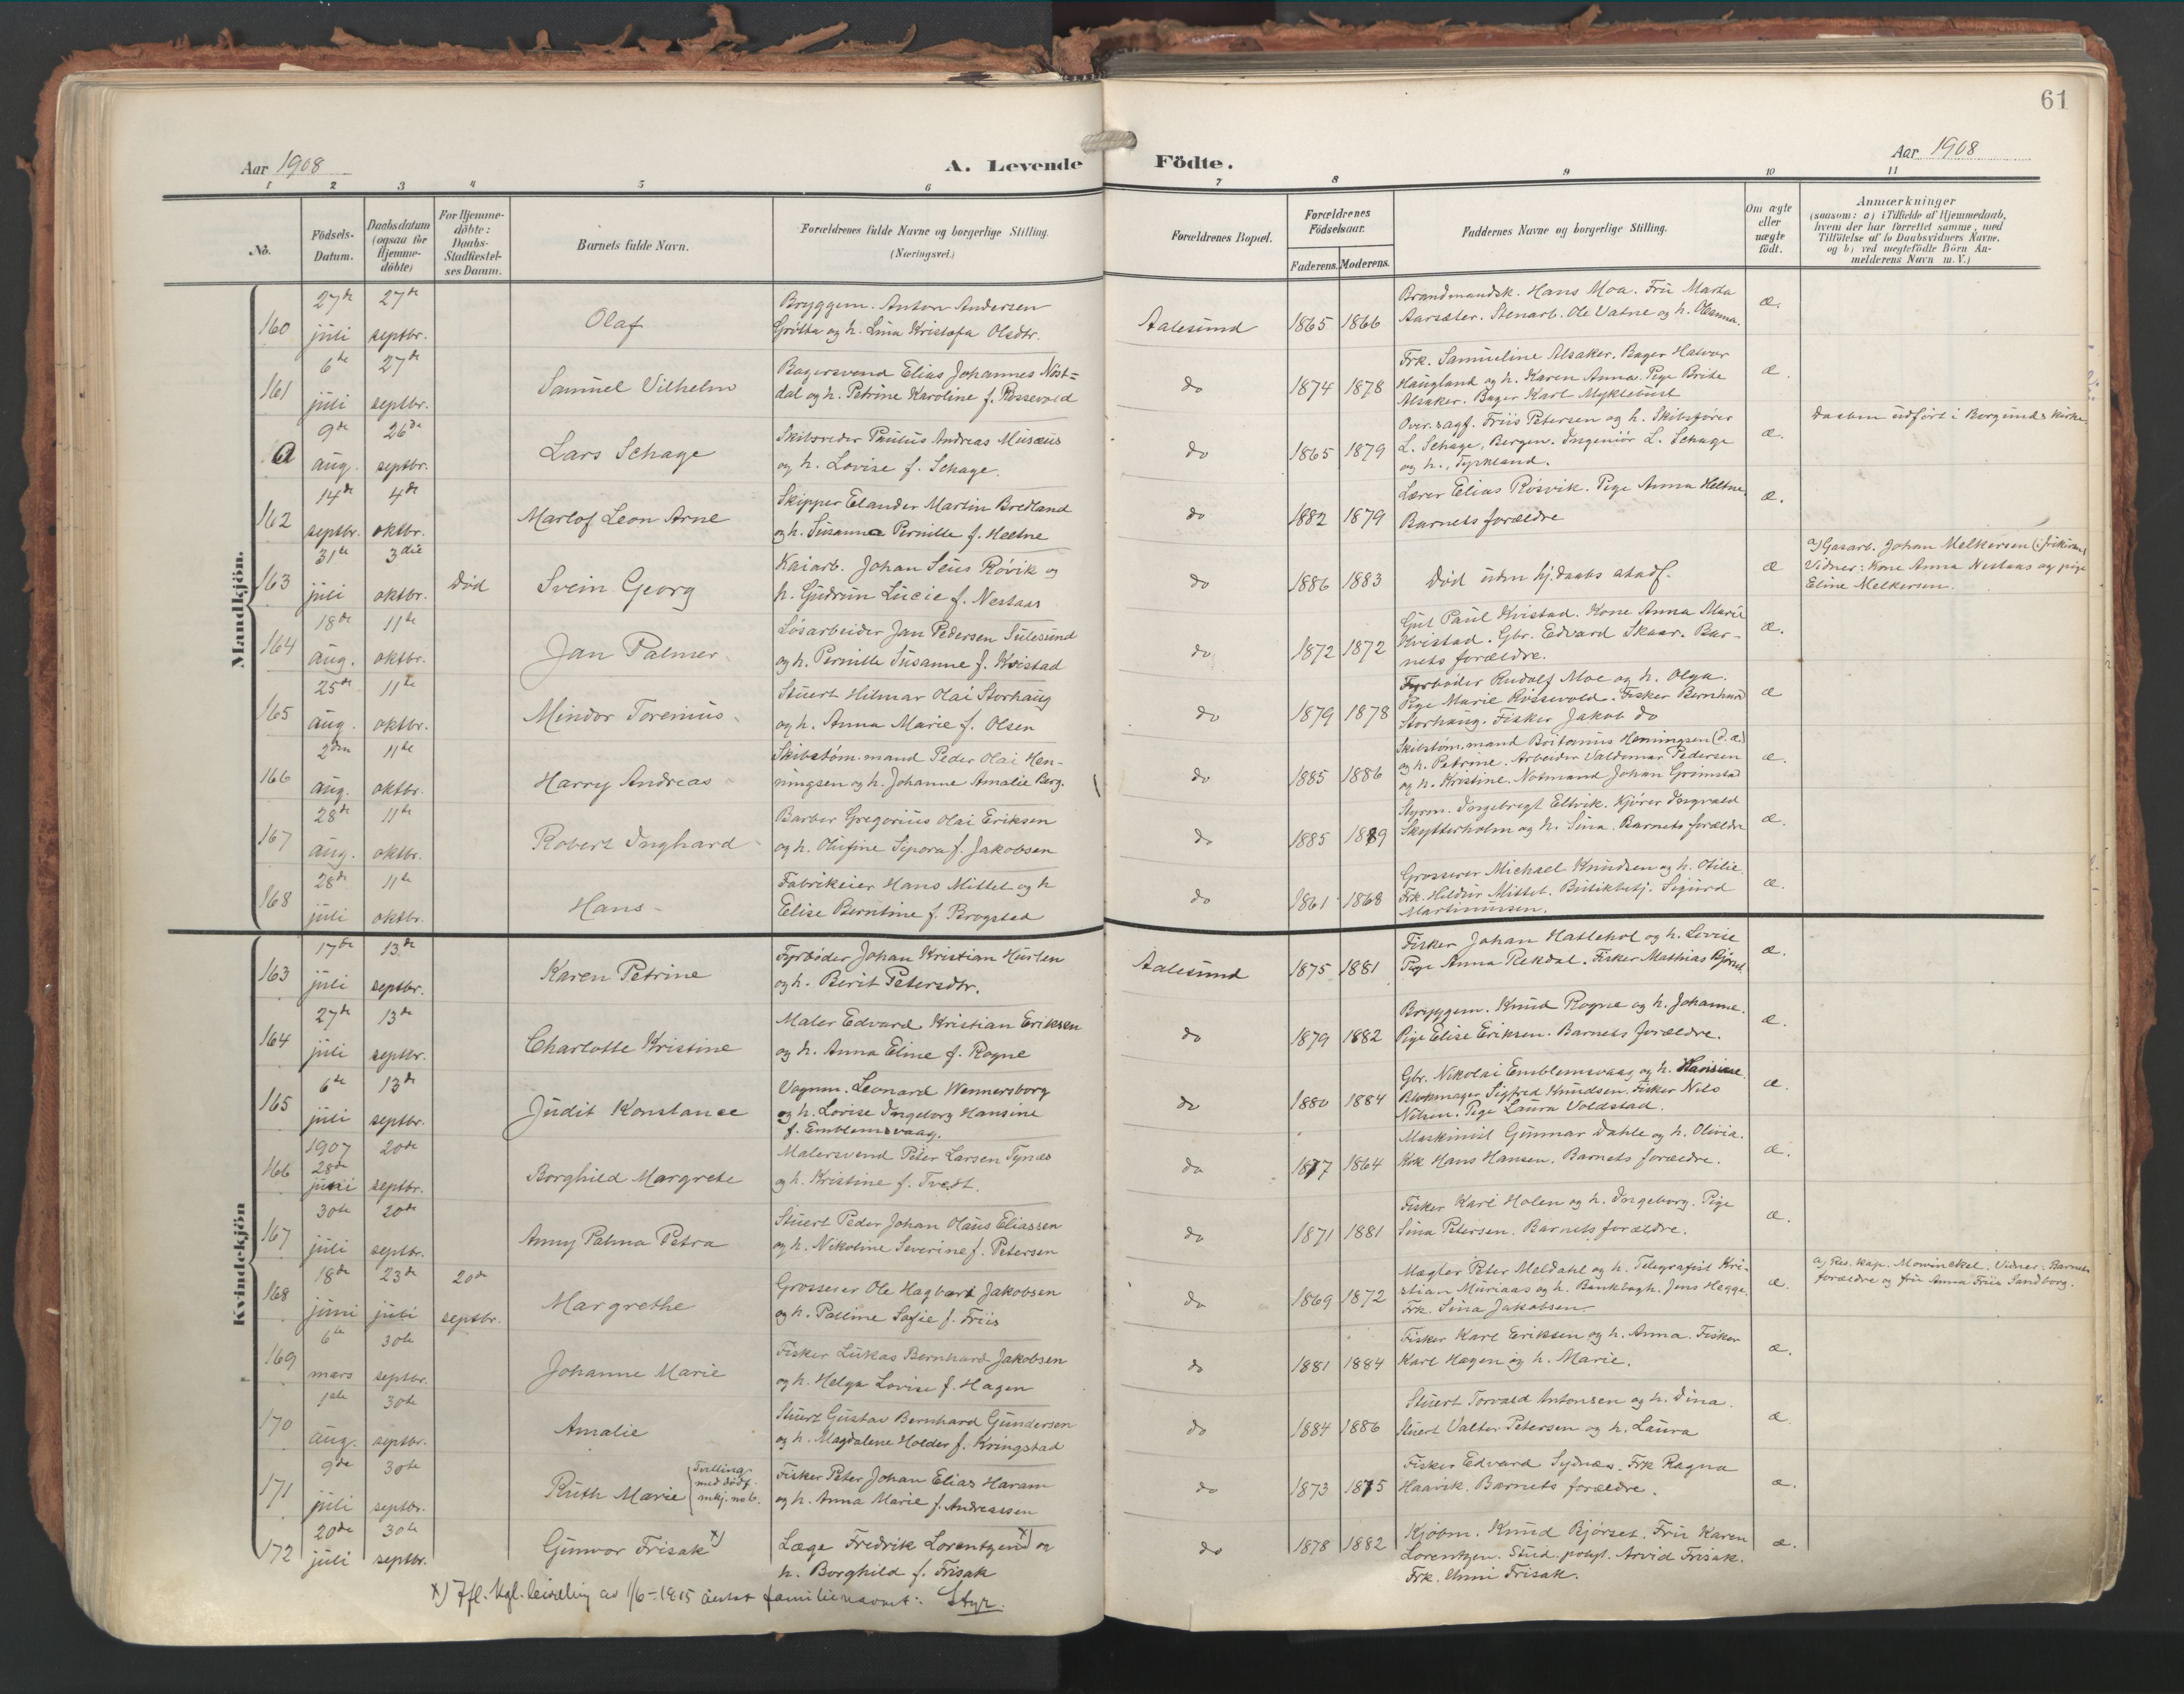 61
Aar 1908
A. Levende Födte.
Aar 1908
1 2 3 4 5 6 7 8 9 10 11
No.
Födsels-Datum.
Daabsdatum (ogsaa for Hjemmedöbte)
For Hjemmedöbte: Daabs-Stadfæstelses Datum.
Barnets fulde Navn.
Forældrenes fulde Navne og borgerlige Stilling. (Næringsvei.)
Forældrenes Bopæl.
Forældrenes Födselsaar.
Faderens. Moderens.
Faddernes Navne og borgerlige Stilling.
Om ægte eller uægte födt.
Anmærkninger
(saasom: a) i Tilfælde af Hjemmedaab,
hvem der har forrettet samme, med
Tilföielse af to Daabsvidners Navne,
og b) ved uægtefödte Börn An-
melderens Navn m. V.)
Mandkjön.
160 27de juli 27de septbr. Olaf
Bryggem. Anton Andersen
Grötta og h. Lina Kristofa Olsdtr.
Aalesund 1865 1866
Brandmandsk. Hans Moa. Fru Marta
Aarsæter. Stenarb. Ole Vatne og h. Oleanna.
æ.
161 6te juli 27de septbr. Samuel Vilhelm
Bagersvend Elias Johannes Nöst=
dal og h. Petrine Karoline f. Rossevold
do 1874 1878
Frk. Samueline Alsaker. Bager Halvor
Haugland og h. Karen Anna. Pige Brite
Alsaker. Bager Karl Myklebust
æ.
a 9de aug. 26de septbr. Lars Schage
Skibsreder Paulus Andreas Musæus
og h. Lovise f. Schage.
do 1865 1879
Over.sagf. Friis Petersen og h. Skibsfører
L. Schage, Bergen. Ingeniör L. Schage
og h., Tyrkland.
æ.
Daaben udfört i Borgunds kirke.
162 14de septbr. 4de oktbr. Marlof Leon Arne
Skipper Elander Martin Bredland
og h. Susanna Pernille f. Heltne
do 1882 1879
Lærer Elias Rösvik. Pige Anna Heltne.
Barnets forældre
æ.
163 31te juli 3die oktbr. Död Svein Georg
Kaiarb. Johan Seus Rövik og
h. Gudrun Lucie f. Nestaas
do 1886 1883
Död uden hj.daabs stadf.
æ
a) Gasarb. Johan Melkersen (i frikirken)
Vidner: Kone Anna Nestaas og pige
Eline Melkersen.
164 18de aug. 11te oktbr. Jan Palmer
Lösarbeider Jan Pedersen Sulesund
og h. Pernille Susanne f. Kvistad
do 1872 1872
Gut Paul Kvistad. Kone Anna Marie
Kvistad. Gbr. Edvard Skaar. Bar-
nets forældre.
æ.
165 25de aug. 11te oktbr. Mindor Torenius
Stuert Hilmar Olai Storhaug
og h. Anna Marie f. Olsen
do 1879 1878
Fyrböder Rudolf Moe og h. Olga.
Pige Marie Rossevold. Fisker Bernhard
Storhaug. Fisker Jakob do
æ
166 2den aug. 11te oktbr. Harry Andreas
Skibstöm.mand Peder Olai Hen-
ningsen og h. Johanne Amalie Berg.
do 1885 1886
Skibstöm.mand Henningsen (d.æ.)
og h. Petrine. Arbeider Valdemar Pedersen
og h. Kristine. Notmand Johan Grimstad
æ.
167 28de aug. 11te oktbr. Robert Inghard
Barber Gregorius Olai Eriksen
og h. Olufine Sipora f. Jakobsen
do 1885 1889
Styrm. Ingebrigt Eltvik. Kjörer Ingvald
Skytterholm og h. Sina. Barnets forældre
æ.
168 28de juli 11te oktbr. Hans
Fabrikeier Hans Mittet og h
Elise Berntine f. Brogstad
do 1861 1868
Grosserer Michael Knudsen og h. Otilie.
Frk. Hildur Mittet. Butikbetj. Sigurd
Martinussen.
æ.
Kvindekjön
163 17de juli 13de septbr. Karen Petrine
Fyrböder Johan Kristian Hurlen
og h. Berit Petersdtr.
Aalesund 1875 1881
Fisker Johan Hatlehol og h. Lovise
Pige Anna Rekdal. Fisker Mathias Bjørnet.
æ.
164 27de juli 13de septbr. Charlotte Kristine
Maler Edvard Kristian Eriksen
og h. Anna Eline f. Rogne
do 1879 1882
Bryggem. Knud Rogne og h. Johanne.
Pige Elise Eriksen. Barnets forældre.
æ.
165 6te juli 13de septbr. Judit Konstance
Vognm. Leonard Wennersborg
og h. Lovise Ingeborg Hansine
f. Emblemsvaag.
do 1880 1884
Gbr. Nikolai Emblemsvaag og h. Hansine.
Blokmager Sigfred Knudsen. Fisker Nils
Nilsen. Pige Laura Voldstad.
æ.
166 1907 28de juni 20de septbr. Borghild Margrete
Malersvend Peter Larsen Tynæs
og h. Kristine f. Tvedt.
do 1877 1864
Maskinist Gunnar Dahle og h. Olivia.
Kok Hans Hansen. Barnets forældre.
æ.
167 30te juli 20de septbr. Anny Palma Petra
Stuert Peder Johan Olaus Eliassen
og h. Nikoline Severine f. Petersen
do 1871 1881
Fisker Karl Holen og h. Ingeborg. Pige
Sina Petersen. Barnets forældre.
æ.
168 18de juni 23de juli 20de septbr. Margrethe
Grosserer Ole Hagbart Jakobsen
og h. Palline Sofie f. Friis
do 1869 1872
Mægler Peter Meldahl og h. Telegrafist Kri-
stian Muriaas og h. Bankbogh. Jens Hegge.
Frk. Sina Jakobsen.
æ.
a) Res. kap. Mowinckel. Vidner: Barnets
forældre og fru Anna Friis Sandborg.
169 6te mars 30te septbr. Johanne Marie
Fisker Lukas Bernhard Jakobsen
og h. Helga Lovise f. Hagen
do 1881 1884
Fisker Karl Eriksen og h. Anna. Fisker
Karl Hagen og h. Marie.
æ.
170 1ste aug. 30te septbr. Amalie
Stuert Gustav Bernhard Gundersen
og h. Magdalene Holder f. Kringstad
do 1884 1886
Stuert Torvald Antonsen og h. Dina.
Stuert Valter Petersen og h. Laura
æ.
171 9de juli 30te septbr. Ruth Marie
Tvilling
med dödf.
mkj. no 6.
Fisker Peter Johan Elias Haram
og h. Anna Marie f. Andreassen
do 1873 1875
Fisker Edvard Sydnæs. Frk Ragna
Haavik. Barnets forældre.
æ.
172 20de juli 30te septbr. Gunvor Frisak x)
Læge Fredrik Lorentzen x) og
h. Borghild f. Frisak
do 1878 1882
Kjöbm. Knud Bjørset. Fru Karen
Lorentzen. Stud. polyt. Arvid Frisak.
Frk. Unni Frisak.
æ.
x) Ifl. kgl. bevilling av 1/6-1915 antat familienavnet: Styr.